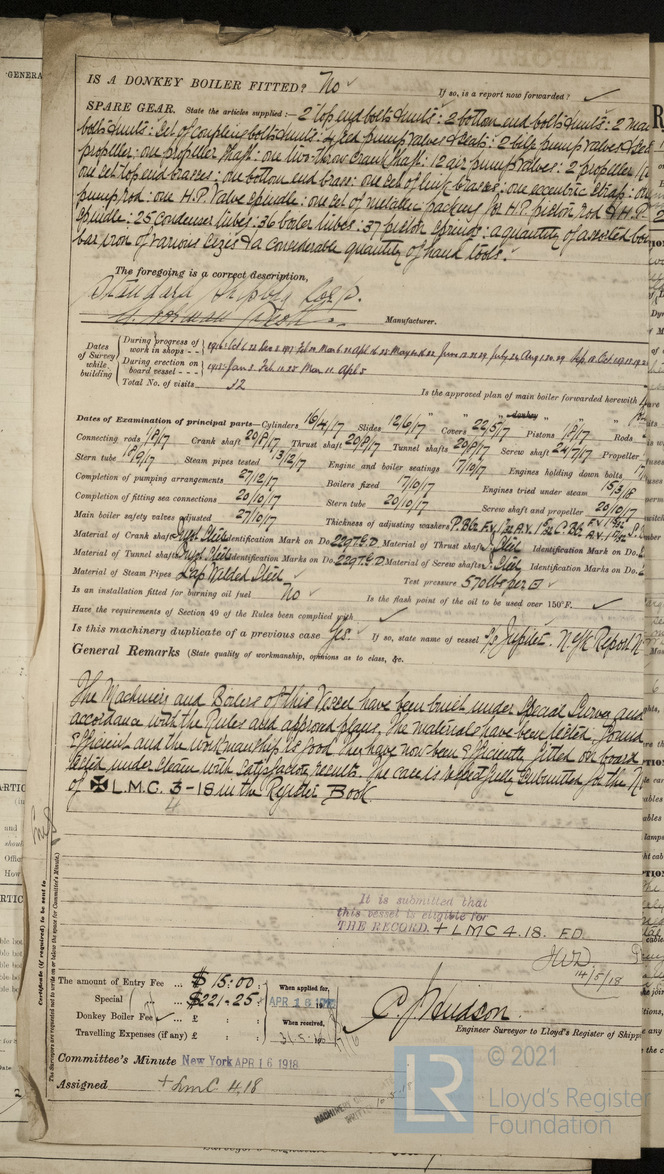 IS A DONKEY BOILER FITTED? No ✓ If so, is a report now forwarded? ✓
SPARE GEAR. State the articles supplied:— 2 top end bolts & nuts: 2 bottom end bolts & nuts: 2 mai
bolts & nuts: Set of coupling bolts & nuts: 4 feed pump valves & seats: 2 bilge pump valves & seat
propeller: one propeller shaft: one two-throw crank shaft: 12 air pump valves: 2 propeller
one set top end brasses: one bottom end brass: one set of link brasses: one eccentric strap: one
pump rod: one H.P. Valve spindle: one set of metallic packing for H.P. piston rod & H.P.
spindle: 25 condenser tubes: 36 boiler tubes: 37 piston springs: a quantity of assorted bo
bar iron of various sizes & a considerable quantity of hand tools.
The foregoing is a correct description,
Standard Shipbg Corp.
Manufacturer.
Dates of Survey while building
During progress of work in shops - -
During erection on board vessel - - - 1918: Jan 2. Feb 11. 25 Mar 11. Apl 5
Total No. of visits 32
Is the approved plan of main boiler forwarded herewith
Dates of Examination of principal parts—Cylinders 16/4/17 Slides 12/6/17 Covers 22/5/17 Pistons 1/8/17 Rods
Connecting rods 1/8/17 Crank shaft 20/9/17 Thrust shaft 20/9/17 Tunnel shafts 20/9/17 Screw shaft 24/7/17 Propeller
Stern tube 18/9/17 Steam pipes tested 13/12/17 Engine and boiler seatings 17/10/17 Engines holding down bolts
Completion of pumping arrangements 27/12/17 Boilers fixed 17/10/17 Engines tried under steam 15/3/18
Completion of fitting sea connections 20/10/17 Stern tube 20/10/17 Screw shaft and propeller 20/10/17
Main boiler safety valves adjusted 27/10/17 Thickness of adjusting washers
Material of Crank shaft Ingot Steel Identification Mark on Do. 2297.G.D. Material of Thrust shaft I. Steel Identification Mark on Do.
Material of Tunnel shafts Ingot Steel Identification Marks on Do. 2297.G.D. Material of Screw shafts I. Steel Identification Marks on Do.
Material of Steam Pipes Lap Welded Steel ✓ Test pressure 570 lbs per □"
Is an installation fitted for burning oil fuel No ✓ Is the flash point of the oil to be used over 150°F. ✓
Have the requirements of Section 49 of the Rules been complied with ✓
Is this machinery duplicate of a previous case Yes. If so, state name of vessel Jupiter. N.Y.K Report N
General Remarks (State quality of workmanship, opinions as to class, &c.
The Machinery and Boilers of this Vessel have been built under Special Survey and
accordance with the Rules and approved plans. The materials have been tested. Found
efficient and the workmanship is good. They have now been efficiently fitted on board
tested under steam with satisfactory results. The case is respectfully submitted for the N
of ✠ L.M.C. 3-18 in the Register Book
4
It is submitted that
this vessel is eligible for
THE RECORD. + LMC 4.18. FD.
JWD
14/5/18
Certificate (if required) to be sent to
The Surveyors are requested not to write on or below the space for Committee's Minute.
The amount of Entry Fee ... $ 15:00: When applied for,
Special ... $221.25: APR 18
Donkey Boiler Fee ... £ : : When received,
Travelling Expenses (if any) £ : : 31.5.
C. J. Hudson.
Engineer Surveyor to Lloyd's Register of Shipp
Committee's Minute New York APR 16 1918
Assigned + LMC 4.18
LR
© 2021
Lloyd's Register
Foundation